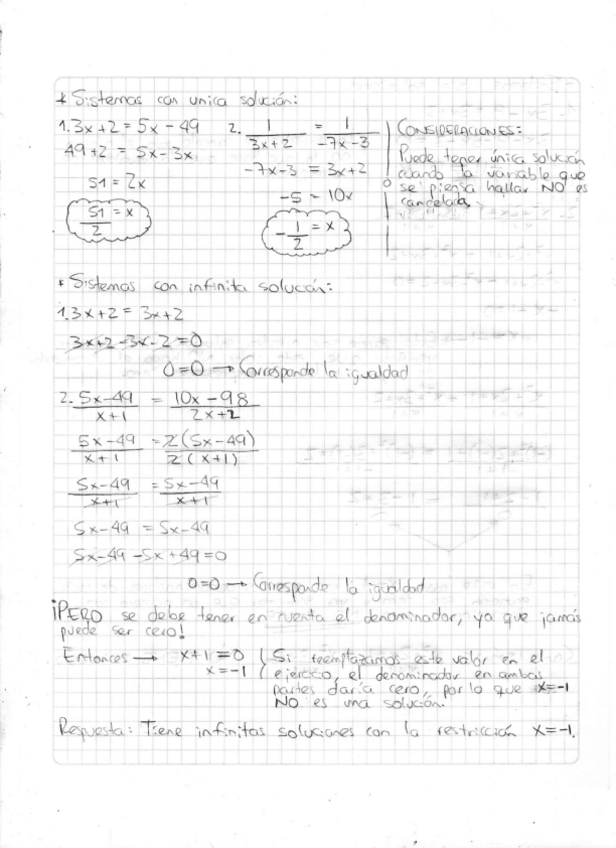 * Sistemas con unica solución:
1. 3x+2 = 5x - 49
49+2 = 5x-3x
51 = 2x
51/2 = x
2. 1/(3x+2) = 1/(-7x-3)
-7x-3 = 3x+2
-5 = 10x
-1/2 = x
CONSIDERACIONES:
Puede tener única solución
cuando la variable que
se piensa hallar NO es
cancelada.
* Sistemas con infinita solución:
1. 3x+2 = 3x+2
3x+2-3x-2=0
0=0 → Corresponde la igualdad
2. (5x-49)/(x+1) = (10x-98)/(2x+2)
(5x-49)/(x+1) = 2(5x-49)/2(x+1)
(5x-49)/(x+1) = (5x-49)/(x+1)
5x-49 = 5x-49
5x-49-5x+49=0
0=0 → Corresponde la igualdad
¡PERO se debe tener en cuenta el denominador, ya que jamás
puede ser cero!
Entonces → x+1=0
x=-1
Si reemplazamos este valor en el
ejercicio, el denominador en ambas
partes daría cero, por lo que x=-1
NO es una solución.
Respuesta: Tiene infinitas soluciones con la restricción x=-1.